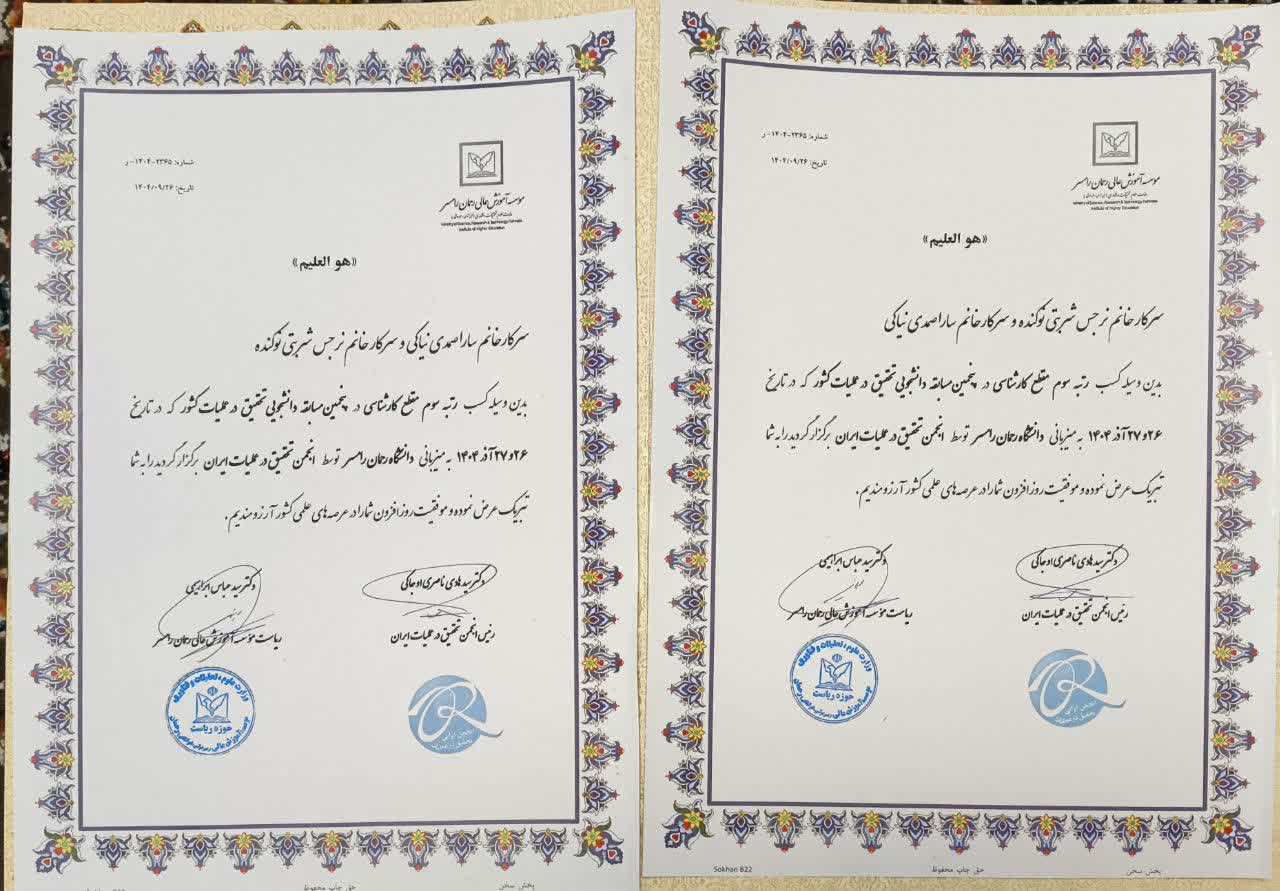 شماره: ۲۳۶۵-۱۴۰۴- ر
تاریخ: ۱۴۰۴/۰۹/۲۶
موسسه آموزش عالی رحمان رامسر
Ministry of Science, Research & Technology Rahman
Institute of Higher Education
«هو العلیم»
سرکار خانم سارا صمدی نیاکی و سرکار خانم نرجس شربتی نوکنده
بدین وسیله کسب رتبه سوم مقطع کارشناسی در پنجمین مسابقه دانشجویی تحقیق در عملیات کشور که در تاریخ
۲۶ و ۲۷ آذر ۱۴۰۴ به میزبانی دانشگاه رحمان رامسر توسط انجمن تحقیق در عملیات ایران برگزار گردید را به شما
تبریک عرض نموده و موفقیت روز افزون شما را در عرصه های علمی کشور آرزومندیم.
دکتر سید هادی ناصری اوجاکی
رئیس انجمن تحقیق در عملیات ایران
دکتر سید عباس ابراهیمی
ریاست مؤسسه آموزش عالی رحمان رامسر
انجمن ایرانی
تحقیق در عملیات
وزارت علوم، تحقیقات و فناوری
حوزه ریاست
پخش سخن
حق چاپ محفوظ
شماره: ۲۳۶۵-۱۴۰۴- ر
تاریخ: ۱۴۰۴/۰۹/۲۶
موسسه آموزش عالی رحمان رامسر
Ministry of Science, Research & Technology Rahman
Institute of Higher Education
«هو العلیم»
سرکار خانم نرجس شربتی نوکنده و سرکار خانم سارا صمدی نیاکی
بدین وسیله کسب رتبه سوم مقطع کارشناسی در پنجمین مسابقه دانشجویی تحقیق در عملیات کشور که در تاریخ
۲۶ و ۲۷ آذر ۱۴۰۴ به میزبانی دانشگاه رحمان رامسر توسط انجمن تحقیق در عملیات ایران برگزار گردید را به شما
تبریک عرض نموده و موفقیت روز افزون شما را در عرصه های علمی کشور آرزومندیم.
دکتر سید هادی ناصری اوجاکی
رئیس انجمن تحقیق در عملیات ایران
دکتر سید عباس ابراهیمی
ریاست مؤسسه آموزش عالی رحمان رامسر
انجمن ایرانی
تحقیق در عملیات
وزارت علوم، تحقیقات و فناوری
حوزه ریاست
پخش سخن
حق چاپ محفوظ
Sokhan 822